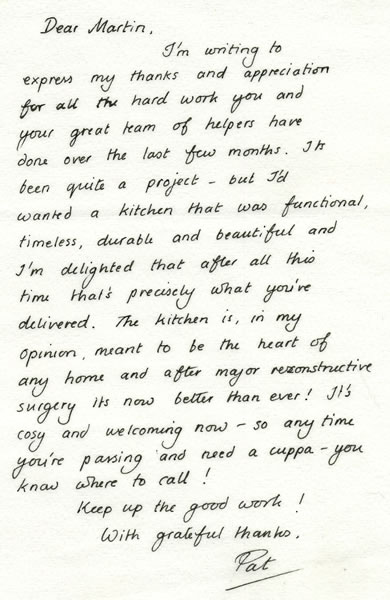 Dear Martin,
I'm writing to
express my thanks and appreciation
for all the hard work you and
your great team of helpers have
done over the last few months. Its
been quite a project - but I'd
wanted a kitchen that was functional,
timeless, durable and beautiful and
I'm delighted that after all this
time that's precisely what you've
delivered. The kitchen is, in my
opinion, meant to be the heart of
any home and after major reconstructive
surgery its now better than ever! It's
cosy and welcoming now - so any time
you're passing and need a cuppa - you
know where to call!
Keep up the good work!
With grateful thanks.
Pat